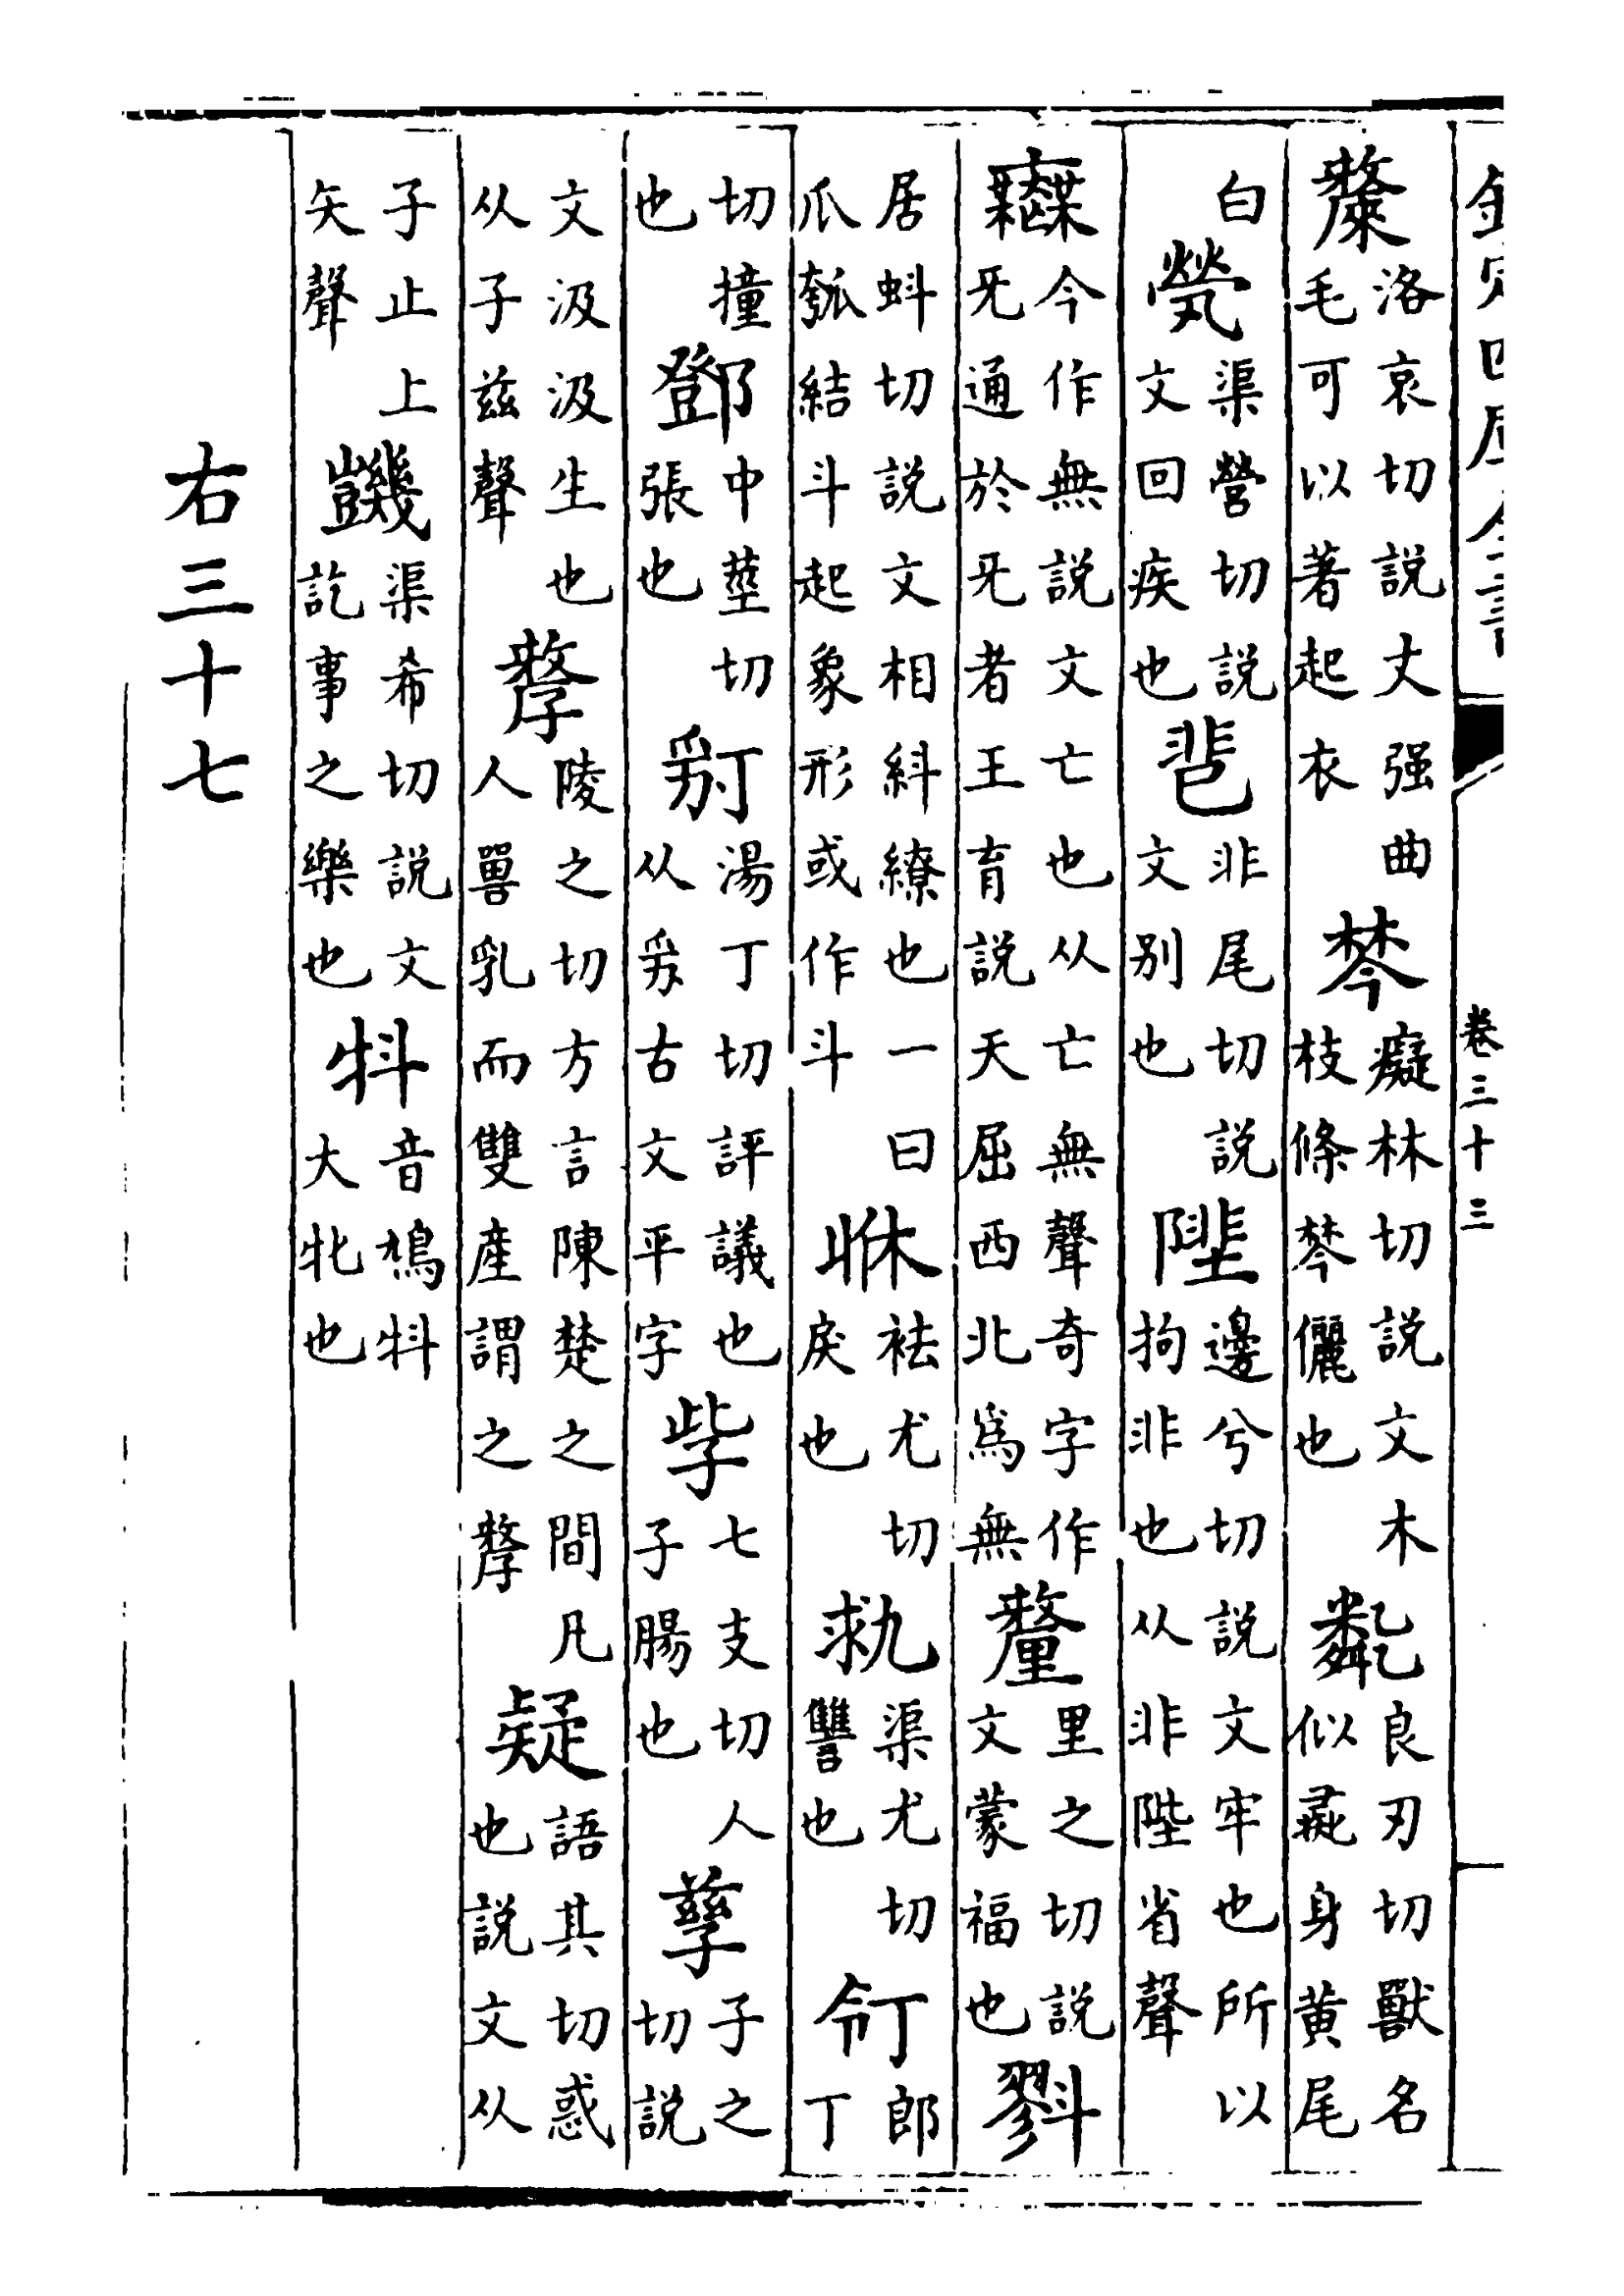 欽定四庫全書 卷三十三
斄 洛哀切說文强曲 毛可以著起衣 棽 癡林切說文木 枝條棽儷也 良刃切獸名 似彘身黄尾
白 煢 渠營切說 文回疾也 非尾切說 文别也 邊兮切說文牢也所以 拘非也从非陛省聲
今作無說文亡也从亡無聲奇字作 旡通於旡者王育說天屈西北爲無 釐 里之切說 文蒙福也
居蚪切說文相糾繚也一曰 瓜瓠結斗起象形或作斗 袪尤切 戾也 渠尤切 讐也 郎 丁
切撞 也 鄧 中莖切 張也 湯丁切評議也 从古文平字 七支切人 子腸也 孳 子之 切說
文汲汲生也 从子兹聲 孷 陵之切方言陳楚之間凡 人嘼乳而雙產謂之孷 疑 語其切惑 也說文从
子止上 矢聲 渠希切說文 訖事之樂也 音鳩 大牝也
右三十七